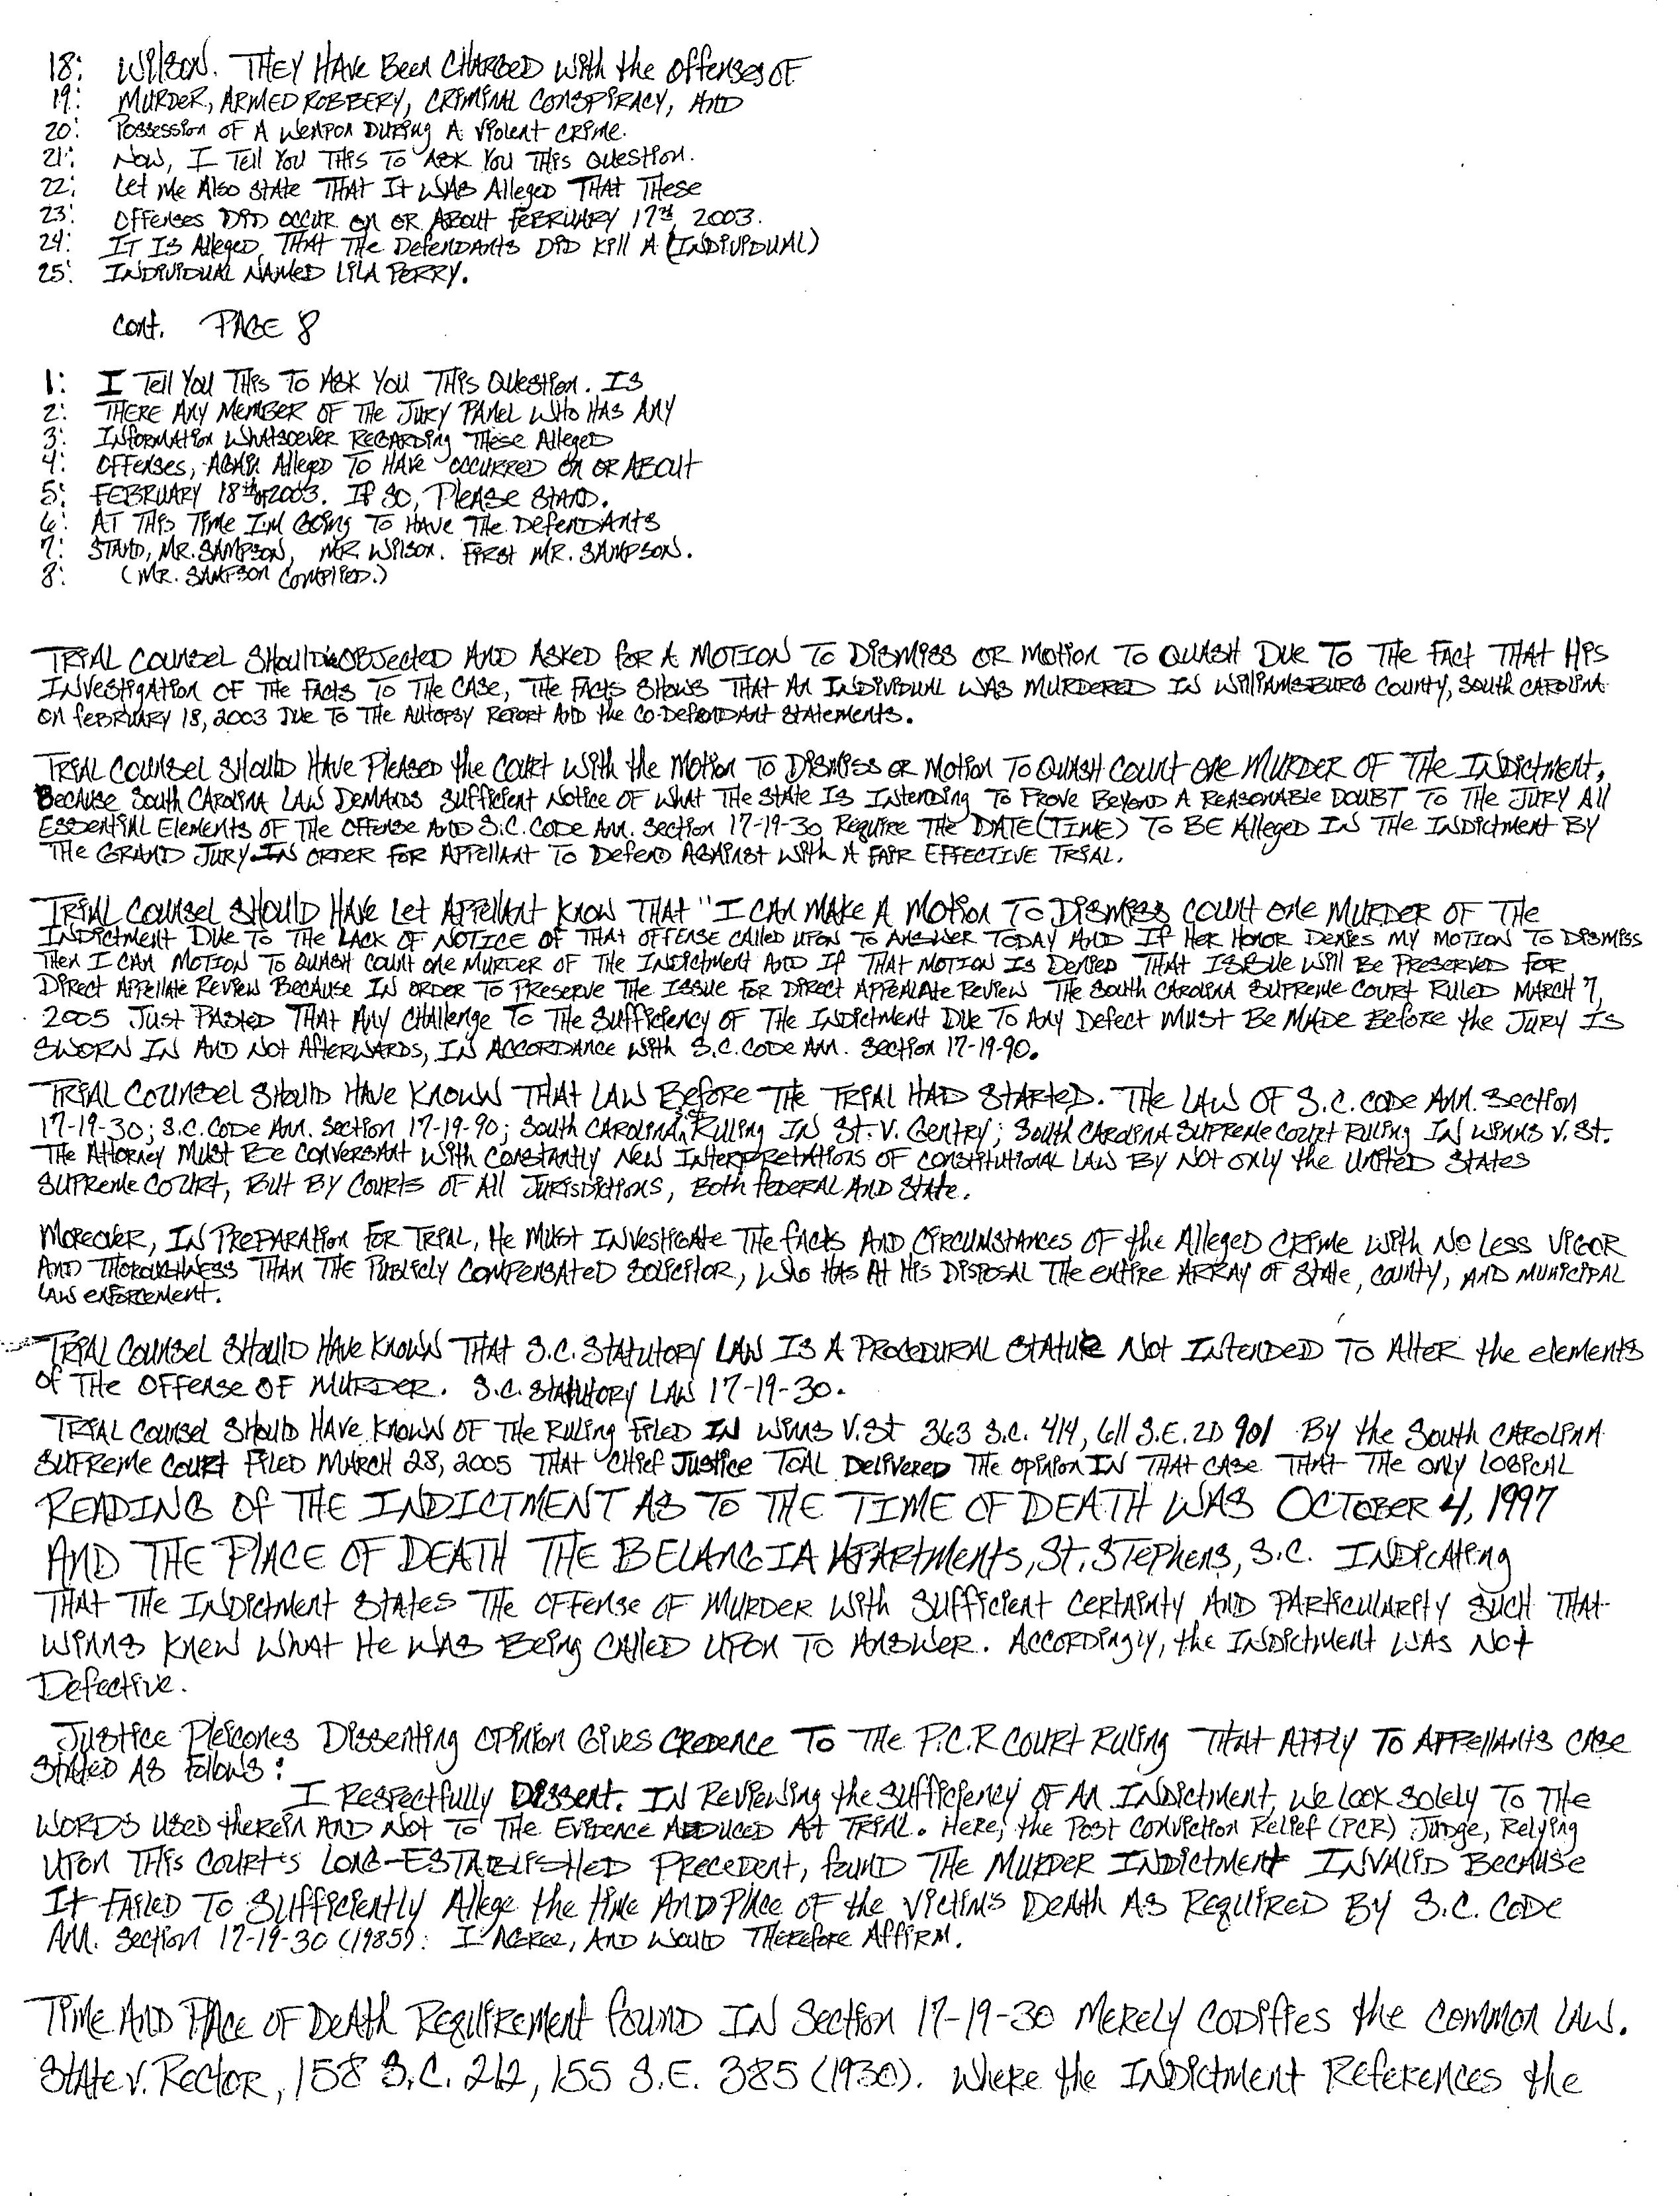 18: WILSON. THEY HAVE BEEN CHARGED WITH the OFFENSES OF
19: MURDER, ARMED ROBBERY, CRIMINAL CONSPIRACY, AND
20: POSSESSION OF A WEAPON DURING A VIOLENT CRIME.
21: NOW, I TELL YOU THIS TO ASK YOU THIS QUESTION.
22: LET ME ALSO STATE THAT IT WAS ALLEGED THAT THESE
23: OFFENSES DID OCCUR ON OR ABOUT FEBRUARY 17th, 2003.
24: IT IS ALLEGED, THAT THE DEFENDANTS DID KILL A (INDIVIDUAL)
25: INDIVIDUAL NAMED LILA PERRY.
cont. PAGE 8
1: I TELL YOU THIS TO ASK YOU THIS QUESTION. IS
2: THERE ANY MEMBER OF THE JURY PANEL WHO HAS ANY
3: INFORMATION WHATSOEVER REGARDING THESE ALLEGED
4: OFFENSES, AGAIN ALLEGED TO HAVE OCCURRED ON OR ABOUT
5: FEBRUARY 18th of 2003. IF SO, PLEASE STAND.
6: AT THIS TIME I'M GOING TO HAVE THE DEFENDANTS
7: STAND, MR. SAMPSON, MR. WILSON. FIRST MR. SAMPSON.
8: (MR. SAMPSON COMPLIED.)
TRIAL COUNSEL SHOULD'VE OBJECTED AND ASKED FOR A MOTION TO DISMISS OR MOTION TO QUASH DUE TO THE FACT THAT HIS
INVESTIGATION OF THE FACTS TO THE CASE, THE FACTS SHOWS THAT AN INDIVIDUAL WAS MURDERED IN WILLIAMSBURG COUNTY, SOUTH CAROLINA
ON FEBRUARY 18, 2003 DUE TO THE AUTOPSY REPORT AND the CO-DEFENDANT STATEMENTS.
TRIAL COUNSEL SHOULD HAVE PLEASED the COURT WITH the MOTION TO DISMISS OR MOTION TO QUASH COUNT ONE MURDER OF THE INDICTMENT,
BECAUSE SOUTH CAROLINA LAW DEMANDS SUFFICIENT NOTICE OF WHAT THE STATE IS INTENDING TO PROVE BEYOND A REASONABLE DOUBT TO THE JURY ALL
ESSENTIAL ELEMENTS OF THE OFFENSE AND S.C. CODE ANN. SECTION 17-19-30 REQUIRE THE DATE (TIME) TO BE ALLEGED IN THE INDICTMENT BY
THE GRAND JURY. IN ORDER FOR APPELLANT TO DEFEND AGAINST WITH A FAIR EFFECTIVE TRIAL.
TRIAL COUNSEL SHOULD HAVE LET APPELLANT KNOW THAT "I CAN MAKE A MOTION TO DISMISS COUNT ONE MURDER OF THE
INDICTMENT DUE TO THE LACK OF NOTICE OF THAT OFFENSE CALLED UPON TO ANSWER TODAY AND IF HER HONOR DENIES MY MOTION TO DISMISS
THEN I CAN MOTION TO QUASH COUNT ONE MURDER OF THE INDICTMENT AND IF THAT MOTION IS DENIED THAT ISSUE WILL BE PRESERVED FOR
DIRECT APPELLATE REVIEW BECAUSE IN ORDER TO PRESERVE THE ISSUE FOR DIRECT APPEALATE REVIEW THE SOUTH CAROLINA SUPREME COURT RULED MARCH 7,
2005 JUST PASTED THAT ANY CHALLENGE TO THE SUFFICIENCY OF THE INDICTMENT DUE TO ANY DEFECT MUST BE MADE BEFORE the JURY IS
SWORN IN AND NOT AFTERWARDS, IN ACCORDANCE WITH S.C. CODE ANN. SECTION 17-19-90.
TRIAL COUNSEL SHOULD HAVE KNOWN THAT LAW BEFORE THE TRIAL HAD STARTED. THE LAW OF S.C. CODE ANN. SECTION
17-19-30; S.C. CODE ANN. SECTION 17-19-90; SOUTH CAROLINA S.Ct. RULING IN ST. V. GENTRY; SOUTH CAROLINA SUPREME COURT RULING IN WINNS V. ST.
THE ATTORNEY MUST BE CONVERSANT WITH CONSTANTLY NEW INTERPRETATIONS OF CONSTITUTIONAL LAW BY NOT ONLY the UNITED STATES
SUPREME COURT, BUT BY COURTS OF ALL JURISDICTIONS, BOTH FEDERAL AND STATE.
MOREOVER, IN PREPARATION FOR TRIAL, HE MUST INVESTIGATE THE FACTS AND CIRCUMSTANCES OF the ALLEGED CRIME WITH NO LESS VIGOR
AND THOROUGHNESS THAN THE PUBLICLY COMPENSATED SOLICITOR, WHO HAS AT HIS DISPOSAL THE ENTIRE ARRAY OF STATE, COUNTY, AND MUNICIPAL
LAW ENFORCEMENT.
TRIAL COUNSEL SHOULD HAVE KNOWN THAT S.C. STATUTORY LAW IS A PROCEDURAL STATUTE NOT INTENDED TO ALTER the elements
OF THE OFFENSE OF MURDER. S.C. STATUTORY LAW 17-19-30.
TRIAL COUNSEL SHOULD HAVE KNOWN OF THE RULING FILED IN WINNS V. ST 363 S.C. 414, 611 S.E. 2D 901 BY the SOUTH CAROLINA
SUPREME COURT FILED MARCH 28, 2005 THAT CHIEF JUSTICE TOAL DELIVERED THE OPINION IN THAT CASE THAT THE ONLY LOGICAL
READING OF THE INDICTMENT AS TO THE TIME OF DEATH WAS OCTOBER 4, 1997
AND THE PLACE OF DEATH THE BELANGIA APARTMENTS, ST. STEPHENS, S.C. INDICATING
THAT THE INDICTMENT STATES THE OFFENSE OF MURDER WITH SUFFICIENT CERTAINTY AND PARTICULARITY SUCH THAT
WINNS KNEW WHAT HE WAS BEING CALLED UPON TO ANSWER. ACCORDINGLY, the INDICTMENT WAS NOT
DEFECTIVE.
JUSTICE PLEICONES DISSENTING OPINION GIVES CREDENCE TO THE P.C.R COURT RULING THAT APPLY TO APPELLANTS CASE
STATED AS FOLLOWS:
I RESPECTFULLY DISSENT. IN REVIEWING the SUFFICIENCY OF AN INDICTMENT, WE LOOK SOLELY TO THE
WORDS USED therein AND NOT TO THE EVIDENCE ADDUCED AT TRIAL. HERE, the POST CONVICTION RELIEF (PCR) JUDGE, RELYING
UPON THIS COURT'S LONG-ESTABLISHED PRECEDENT, FOUND THE MURDER INDICTMENT INVALID BECAUSE
IT FAILED TO SUFFICIENTLY ALLEGE the time AND PLACE OF the VICTIMS DEATH AS REQUIRED BY S.C. CODE
ANN. SECTION 17-19-30 (1985). I AGREE, AND WOULD THEREFORE AFFIRM.
TIME AND PLACE OF DEATH REQUIREMENT FOUND IN SECTION 17-19-30 MERELY CODIFIES the COMMON LAW.
STATE V. RECTOR, 158 S.C. 212, 155 S.E. 385 (1930). WHERE the INDICTMENT REFERENCES the